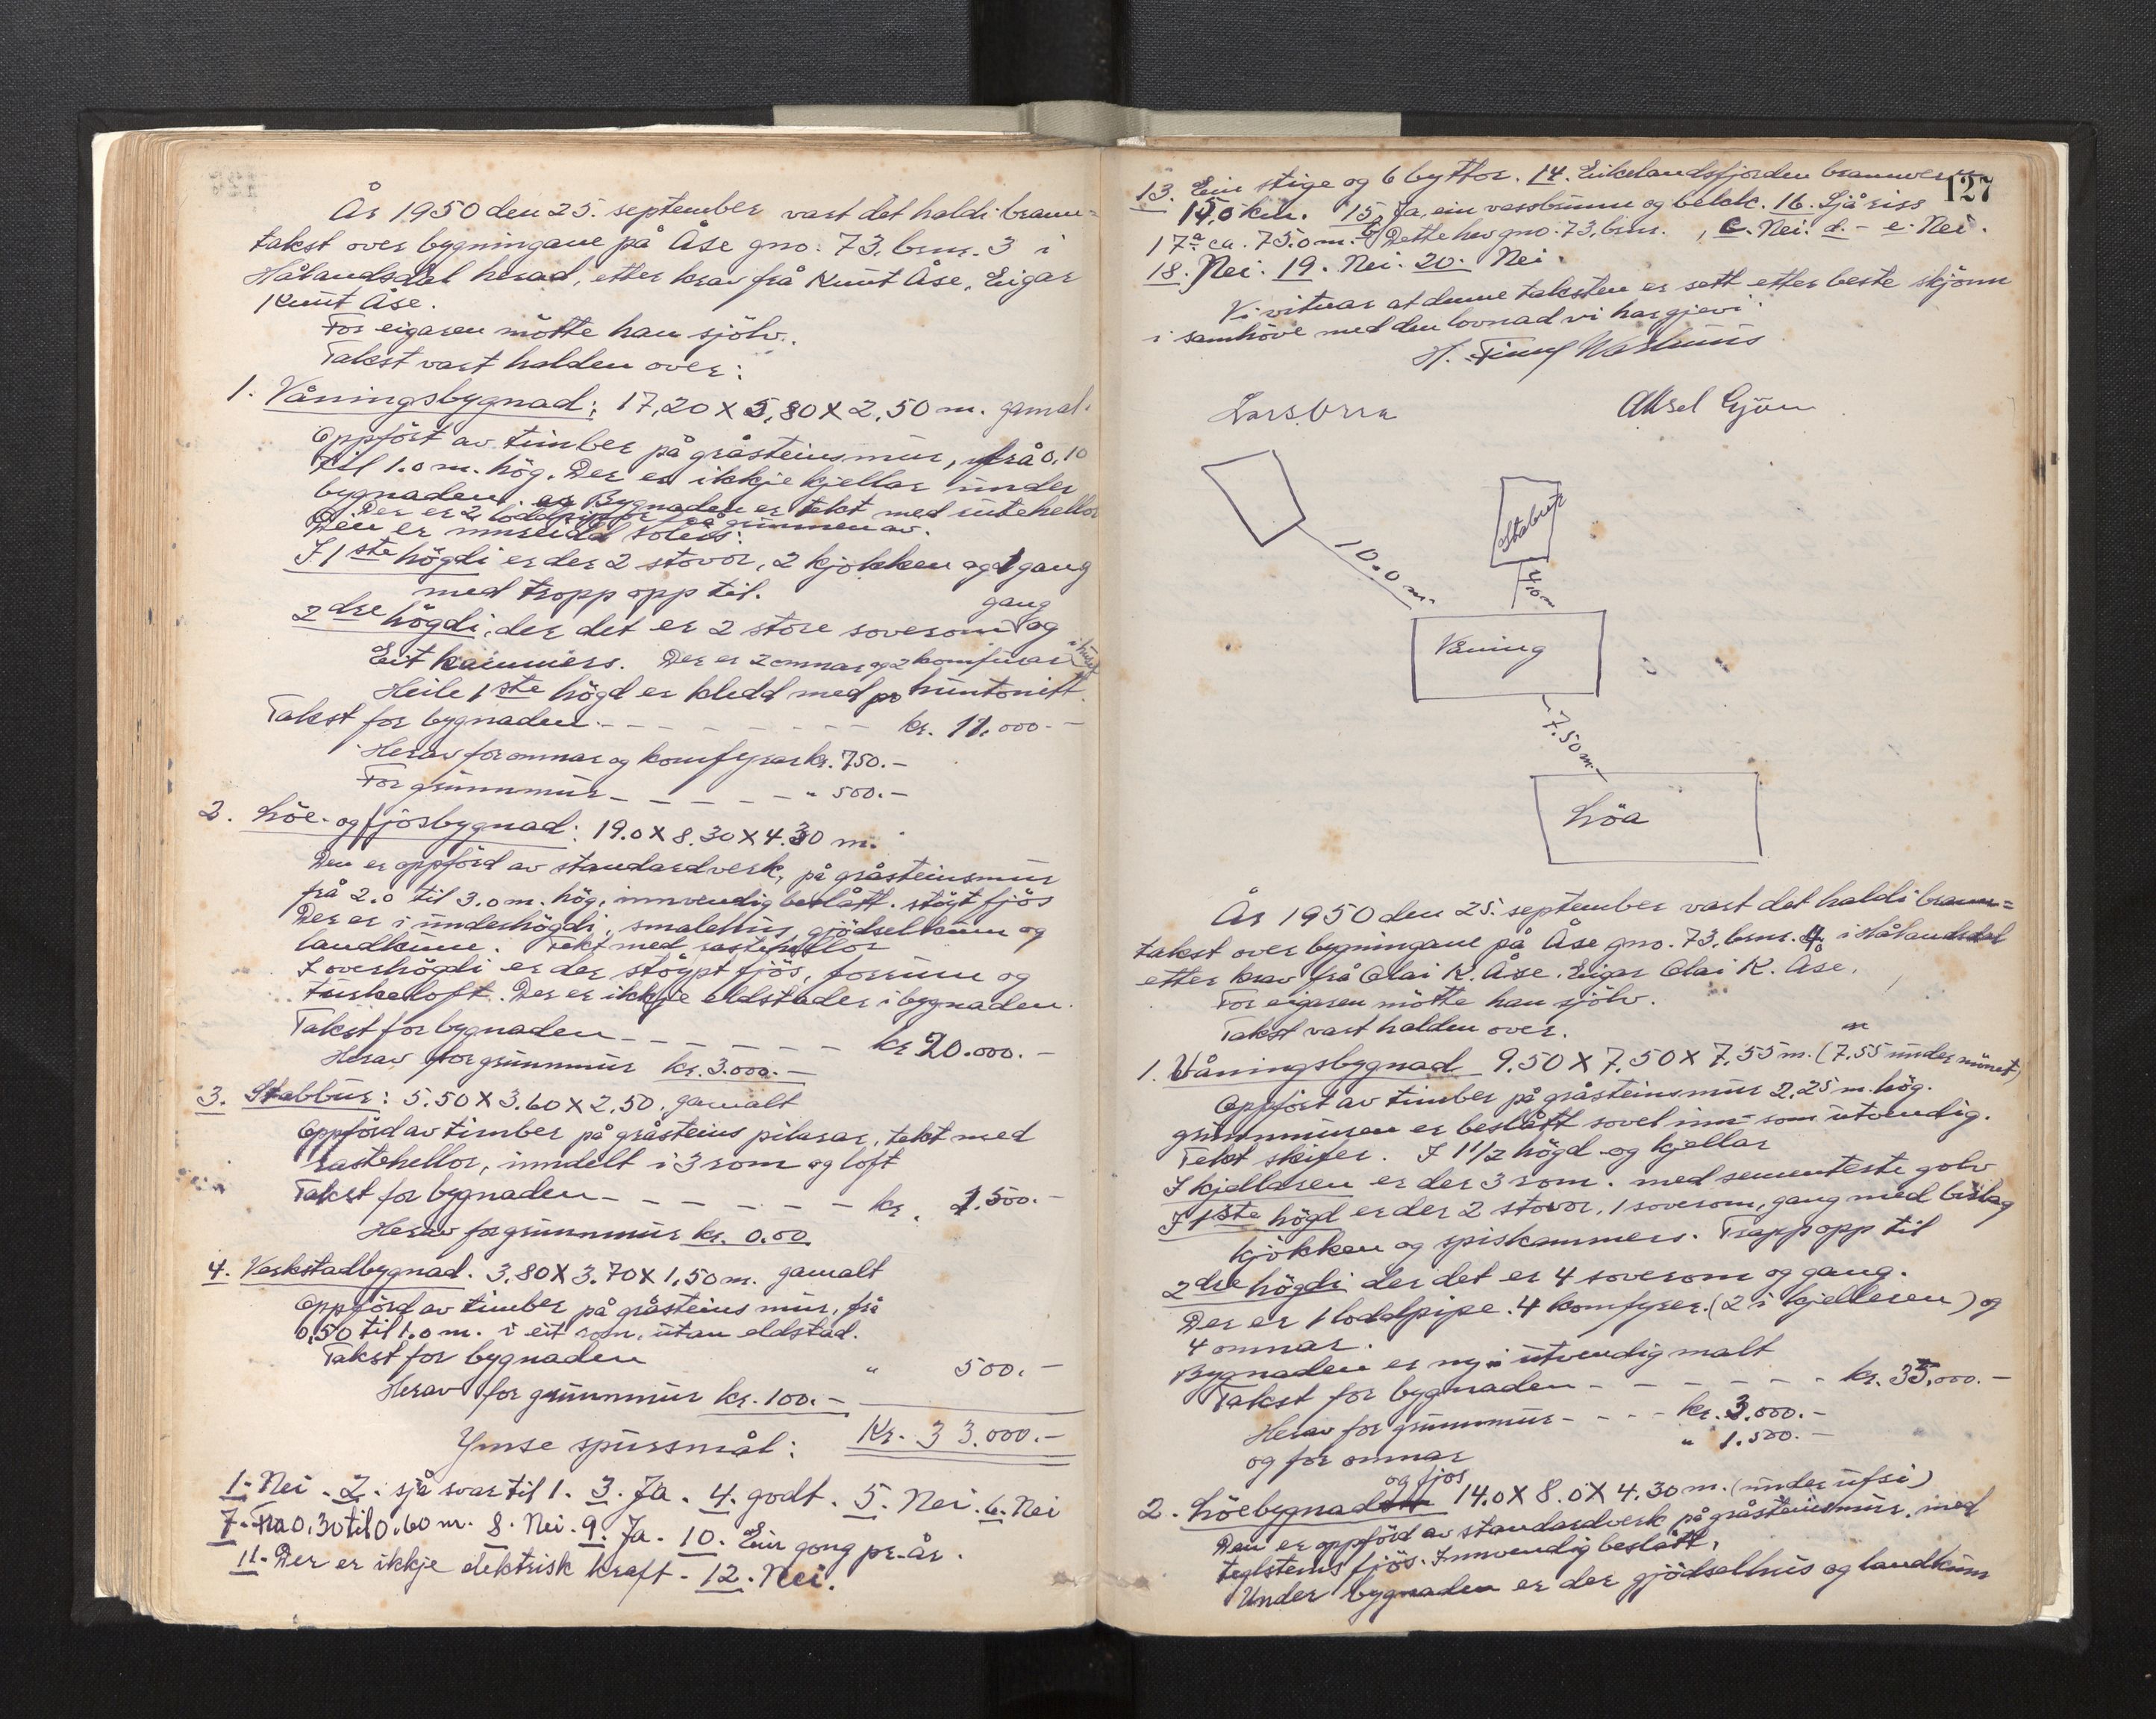 År 1950 den 25. september vart det haldi brann=
takst over bygningane på Åse gno: 73, brnr. 3 i
Hålandsdal herad, etter krav frå Knut Åse, Eigar
Knut Åse.
For eigaren mötte han sjölv.
Takst vart halden over:
1. Våningsbygnad: 17,20 X 5,80 X 2,50 m. gamal.
Oppfört av timber på gråsteinsmur, frå 0,10
til 1.0 m. hög. Der er ikkje kjellar under
bygnaden. Bygnaden er tekt med rutehellor
Der er 2 loddpipor på grunnen av.
Den er innreidd soleis:
I 1ste högdi er der 2 stovor, 2 kjökken og 1 gang
med tropp opp til.
2dre högdi, der det er 2 store soverom gang og
Eit kammers. Der er 2 omnar og 2 komfurar i huset
Heile 1ste högd er kledd med huntonitt.
Takst for bygnaden - - - - - - - kr. 11.000.-
Herav for omnar og komfyrar kr. 750.-
For grunnmur - - - - - " 500.-
2. Löe- og fjösbygnad: 19.0 X 8.30 X 4.30 m.
Den er oppförd av standardverk, på gråsteinsmur
frå 2.0 til 3.0 m. hög, innvendig beslått. stöpt fjös
Der er i underhögdi, smalehus, gjödselkum og
landkum. Tekt med rutehellor
I overhögdi er der stöypt fjös, forrum og
turkeloft. Der er ikkje eldstader i bygnaden.
Takst for bygnaden - - - - - - kr. 20.000.-
Herav for grunnmur kr. 3.000.-
3. Stabbur: 5.50 X 3.60 X 2.50. gamalt
Oppförd av timber på gråsteins pilarar, tekt med
rutehellor, inndelt i 3 rom og loft
Takst for bygnaden - - - - - - kr. 1.500.-
Herav for grunnmur kr. 0.00
4. Verkstadbygnad. 3.80 X 3.70 X 1,50 m. gamalt
Oppförd av timber på gråsteins mur, frå
0,50 til 1.0 m. i eit rom, utan eldstad.
Takst for bygnaden " 500.-
Herav for grunnmur kr. 100.-
Ymse spursmål: Kr. 33.000.-
1. Nei. 2. sjå svar til 1. 3. Ja. 4. godt. 5. Nei. 6. Nei
7. Fra 0,30 til 0.60 m. 8. Nei. 9. Ja. 10. Ein gong pr. år.
11. Der er ikkje elektrisk kraft. 12. Nei.
127
13. Ein stige og 6 byttor. 14. Eikelandsfjorden brannvern
15,0 km. 15. Ja, ein vassbrunn og bekk. 16. Sjå riss
17a ca. 75.0 m. b Dette hev gno. 73, brnr. , c. Nei. d. - e. Nei.
18. Nei. 19. Nei. 20. Nei.
Vi vitnar at denne taksten er sett etter beste skjönn
i samhöve med den lovnad vi har gjevi
Aksel Gjön
Stabur
10.0 m.
4,0 m
Våning
7.50 m.
Löa
År 1950 den 25. september vart det haldi brann=
takst over bygningane på Åse gno. 73, brnr. 4. i Hålandsdal
etter krav frå Olai K. Åse. Eigar Olai K. Åse.
For eigaren mötte han sjölv.
Takst vart halden over.
1. Våningsbygnad 9.50 X 7.50 X 7.55 m. (7,55 under mönet)
Oppfört av timber på gråsteinsmur 2,25 m. hög.
grunnmuren er beslått sovel inn- som utvendig.
Tekt skifer. I 1 1/2 högd og kjellar
I kjellaren er der 3 rom. med sementeste golv
I 1ste högd er der 2 stovor, 1 soverom, gang med bislag
kjökken og spiskammers. Trapp opp til
2dre högdi der det er 4 soverom og gang.
Der er 1 loddpipe. 4 komfyrer. (2 i kjelleren) og
4 omnar.
Bygnaden er ny i utvendig malt
Takst for bygnaden - - - - - - - kr. 35.000.-
Herav for grunnmur - - - - kr. 3.000.-
og for omnar " 1.500.-
2. Löebygnad og fjos 14.0 X 8.0 X 4.30 m. (under ufsi)
Den er oppförd av standardverk på gråsteinsmur, med
teglsteins fjös. Innvendig beslått.
Under bygnaden er der gjödselhus og landkum